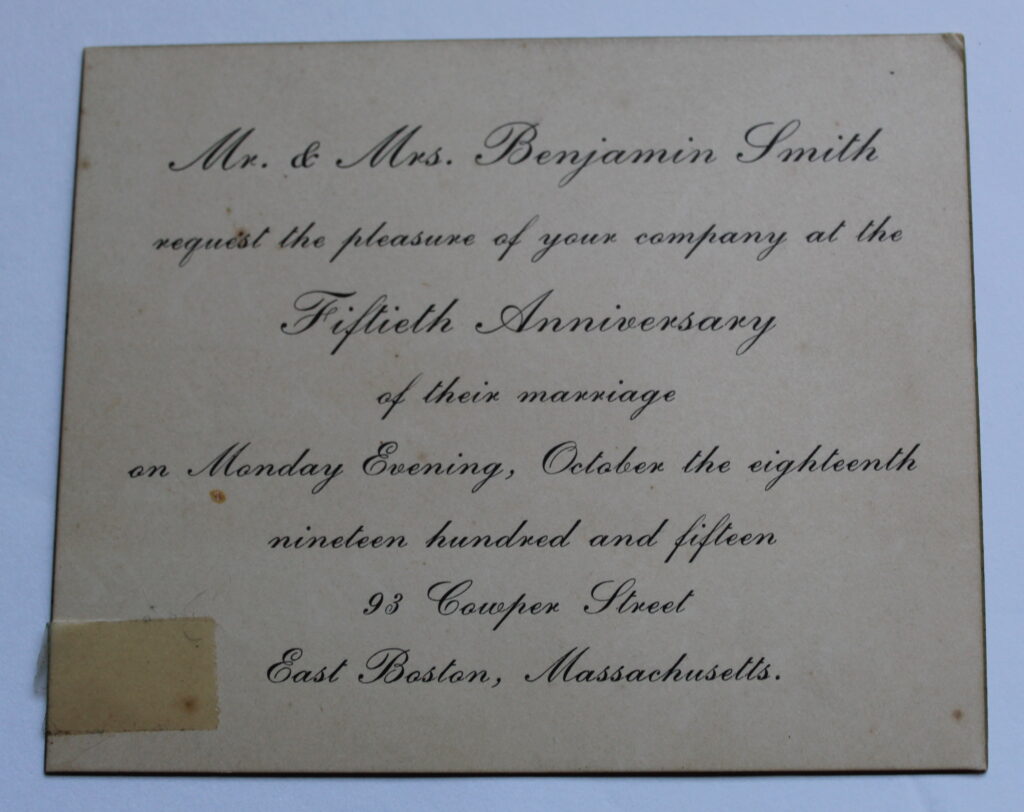 Mr. & Mrs. Benjamin Smith
request the pleasure of your company at the
Fiftieth Anniversary
of their marriage
on Monday Evening, October the eighteenth
nineteen hundred and fifteen
93 Cowper Street
East Boston, Massachusetts.